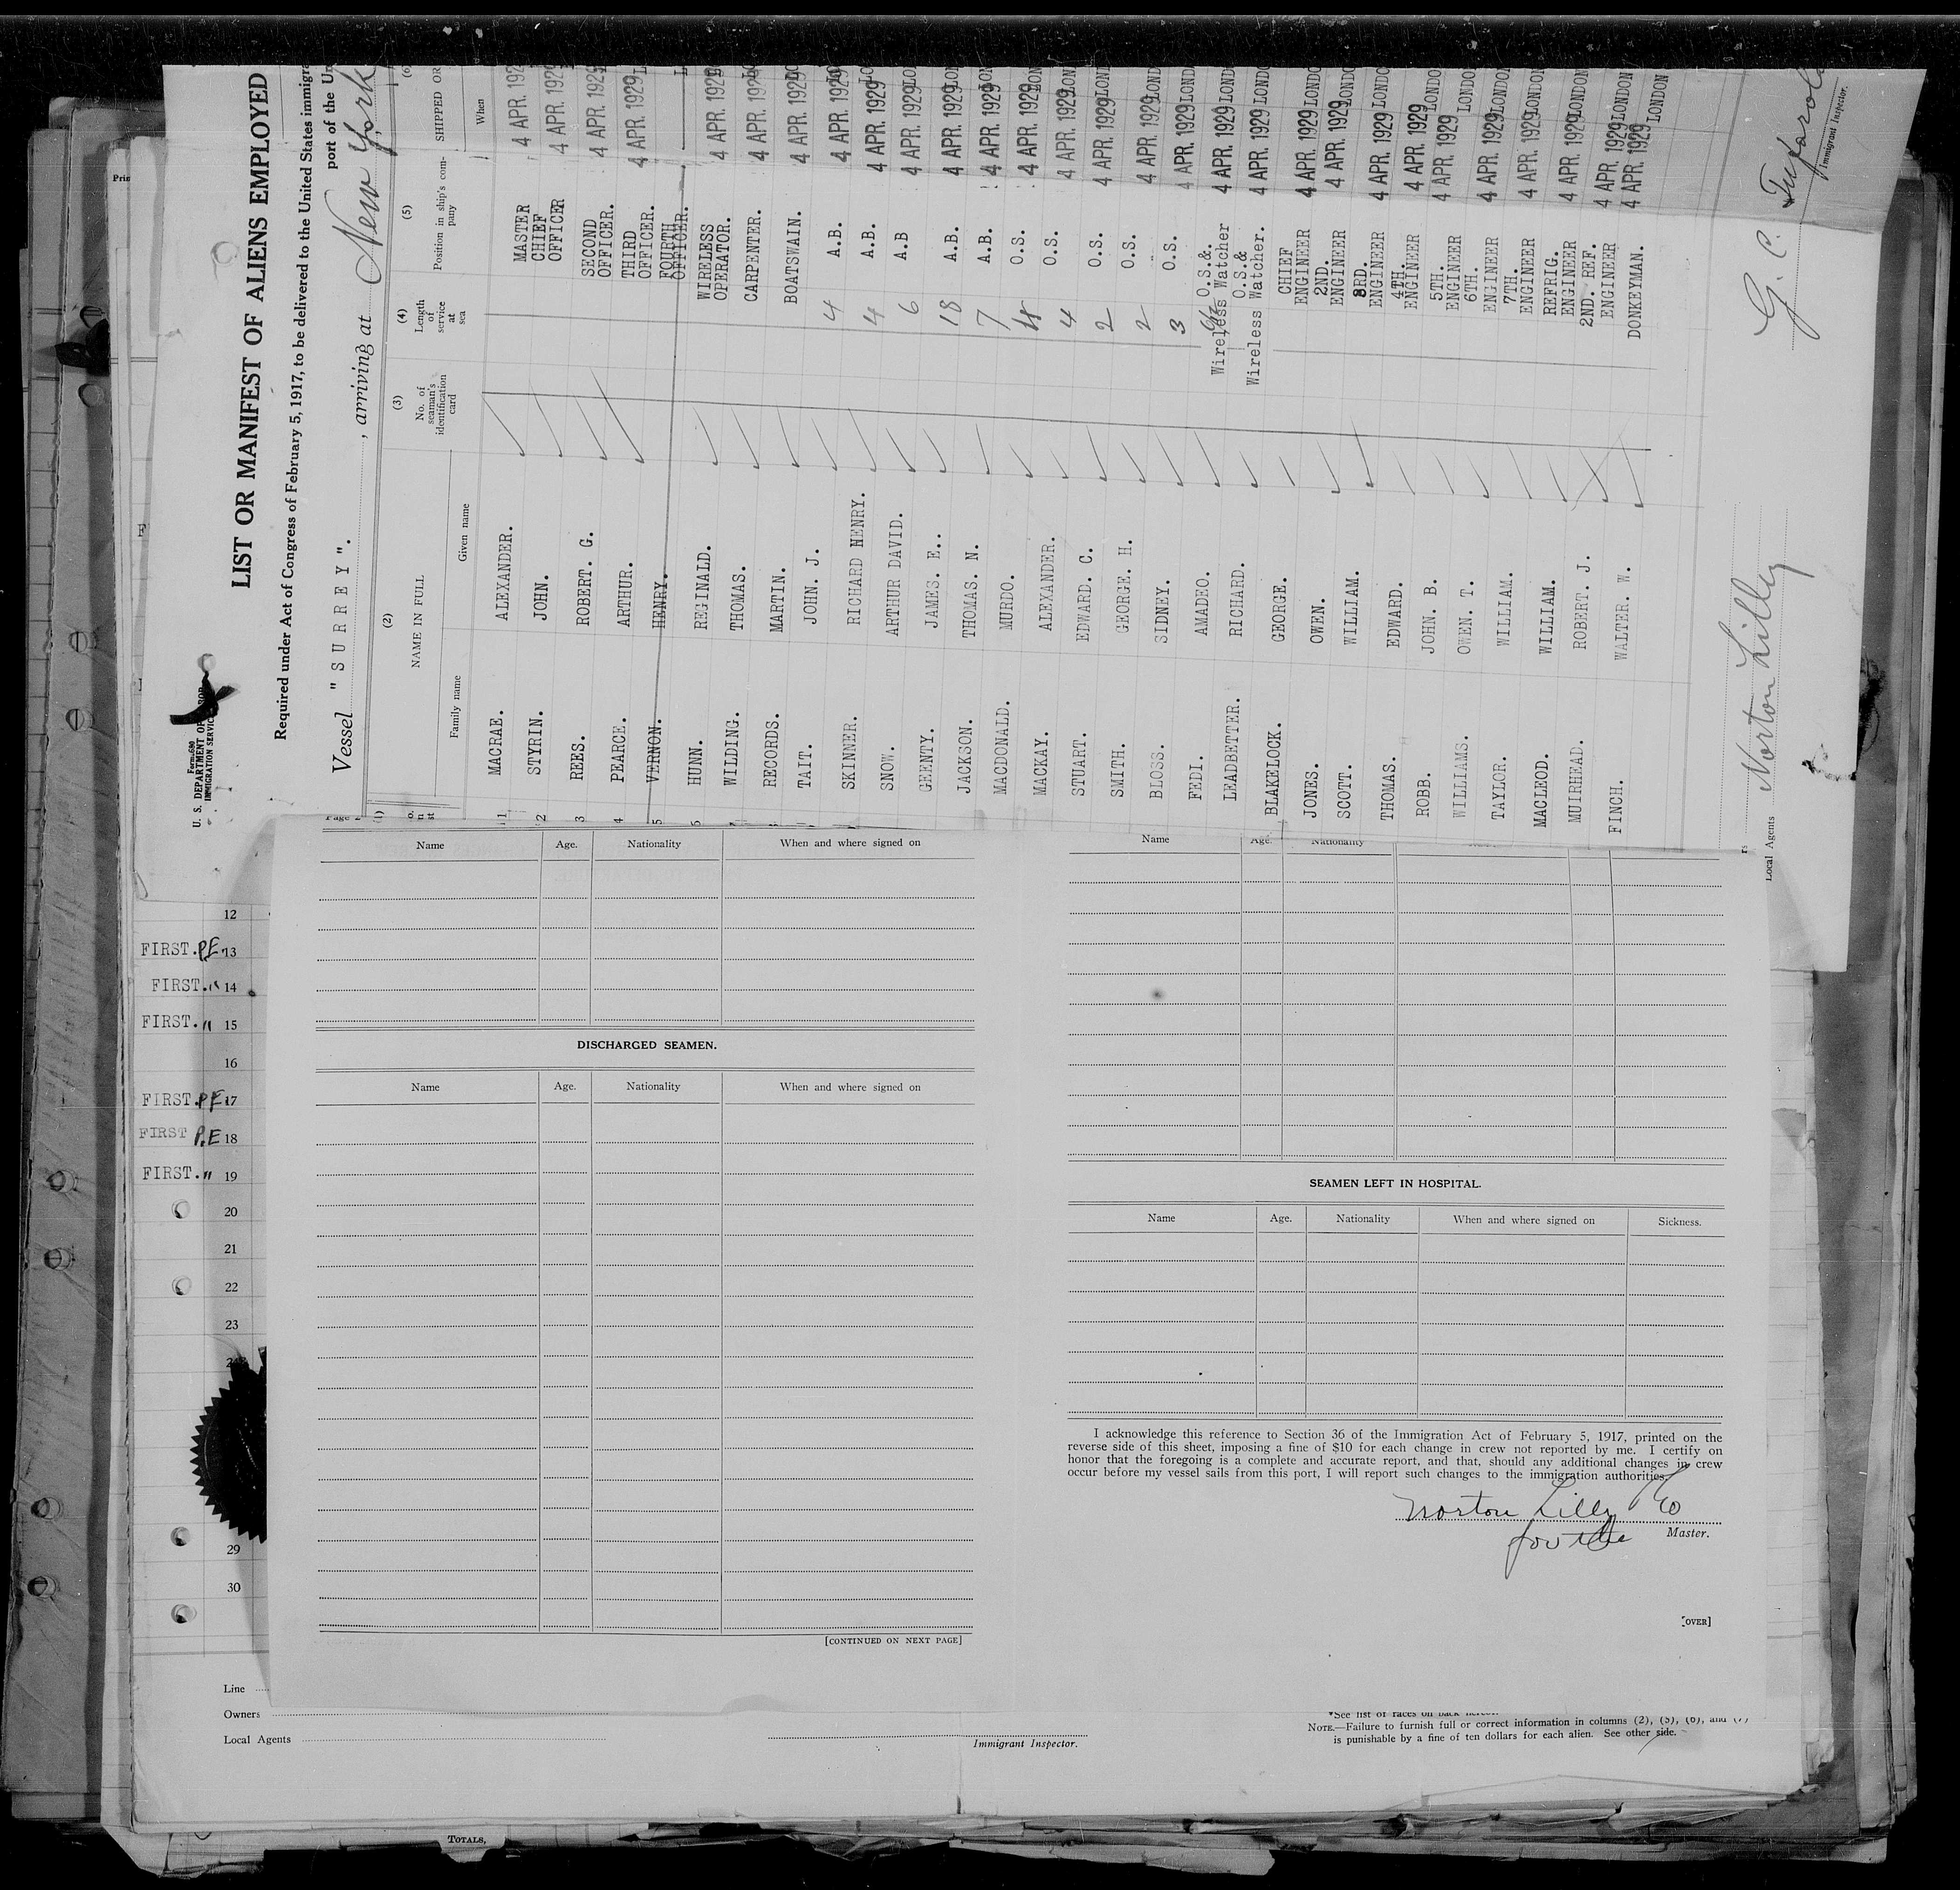 Form 680
U. S. DEPARTMENT OF LABOR
IMMIGRATION SERVICE
LIST OR MANIFEST OF ALIENS EMPLOYED
Required under Act of Congress of February 5, 1917, to be delivered to the United States immigra
port of the Un
Vessel "SURREY". , arriving at New York
(1) (2) (3) (4) (5) (6)
NAME IN FULL No. of seaman's identification card Length of service at sea Position in ship's company SHIPPED OR
Family name Given name When
1 MACRAE. ALEXANDER. MASTER 4 APR. 192
2 STYRIN. JOHN. CHIEF OFFICER 4 APR. 1929
3 REES. ROBERT. G. SECOND OFFICER. 4 APR. 1929
4 PEARCE. ARTHUR. THIRD OFFICER. 4 APR. 1929 L
5 VERNON. HENRY. FOURTH OFFICER.
6 HUNN. REGINALD. WIRELESS OPERATOR. 4 APR. 1929
WILDING. THOMAS. CARPENTER. 4 APR. 1929
RECORDS. MARTIN. BOATSWAIN. 4 APR. 1929
TAIT. JOHN. J. 4 A.B. 4 APR. 1929
SKINNER. RICHARD HENRY. 4 A.B. 4 APR. 1929 LO
SNOW. ARTHUR DAVID. 6 A.B 4 APR. 1929 LO
GEENTY. JAMES. E.. 18 A.B. 4 APR. 1929 LON
JACKSON. THOMAS. N. 7 A.B. 4 APR. 1929 LON
MACDONALD. MURDO. O.S. 4 APR. 1929 LON
MACKAY. ALEXANDER. 4 O.S. 4 APR. 1929 LOND
STUART. EDWARD. C. 2 O.S. 4 APR. 1929 LOND
SMITH. GEORGE. H. 2 O.S. 4 APR. 1929 LOND
BLOSS. SIDNEY. 3 O.S. 4 APR. 1929 LOND
FEDI. AMADEO. O.S.&. Wireless Watcher 4 APR. 1929 LOND
LEADBETTER. RICHARD. O.S.& Wireless Watcher. 4 APR. 1929 LOND
BLAKELOCK. GEORGE. CHIEF ENGINEER 4 APR. 1929 LONDO
JONES. OWEN. 2ND. ENGINEER 4 APR. 1929 LONDO
SCOTT. WILLIAM. 3RD. ENGINEER 4 APR. 1929 LONDO
THOMAS. EDWARD. 4TH. ENGINEER 4 APR. 1929 LONDO
ROBB. JOHN. B. 5TH. ENGINEER 4 APR. 1929 LONDON
WILLIAMS. OWEN. T. 6TH. ENGINEER 4 APR. 1929 LONDON
TAYLOR. WILLIAM. 7TH. ENGINEER 4 APR. 1929 LONDON
MACLEOD. WILLIAM. REFRIG. ENGINEER 4 APR. 1929 LONDON
MUIRHEAD. ROBERT. J. 2ND. REF. ENGINEER 4 APR. 1929 LONDON
FINCH. WALTER. W. DONKEYMAN. 4 APR. 1929 LONDON
Local Agents Norton Lilly
G. C.
Immigrant Inspector.
Name Age. Nationality When and where signed on
DISCHARGED SEAMEN.
Name Age. Nationality When and where signed on
[CONTINUED ON NEXT PAGE]
Name Age. Nationality
SEAMEN LEFT IN HOSPITAL.
Name Age. Nationality When and where signed on Sickness.
I acknowledge this reference to Section 36 of the Immigration Act of February 5, 1917, printed on the
reverse side of this sheet, imposing a fine of $10 for each change in crew not reported by me. I certify on
honor that the foregoing is a complete and accurate report, and that, should any additional changes in crew
occur before my vessel sails from this port, I will report such changes to the immigration authorities.
Norton Lilly & Co
for the Master.
[OVER]
12
FIRST. P.E. 13
FIRST. " 14
FIRST. " 15
16
FIRST. P.E. 17
FIRST P.E 18
FIRST. " 19
20
21
22
23
24
29
30
Line
Owners
Local Agents
Immigrant Inspector.
*See list of races on back hereof.
NOTE.—Failure to furnish full or correct information in columns (2), (5), (6), and (7)
is punishable by a fine of ten dollars for each alien. See other side.
TOTALS,